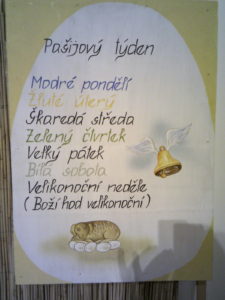 Pašijový týden
Modré pondělí
Žluté úterý
Škaredá středa
Zelený čtvrtek
Velký pátek
Bílá sobota
Velikonoční neděle
(Boží hod velikonoční)